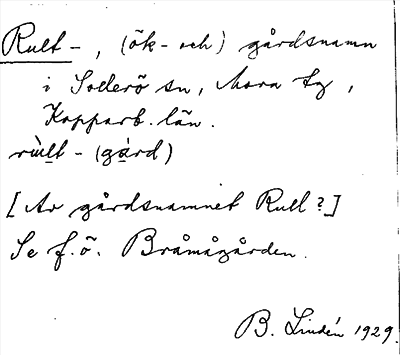 Rult-, (ök- och) gårdsnamn
i Sollerö sn, Mora tg,
Kopparb. län.
rùlt - (gård)
[Av gårdsnamnet Rull?]
Se f.ö. Bråmågården.
B. Lindén 1929.